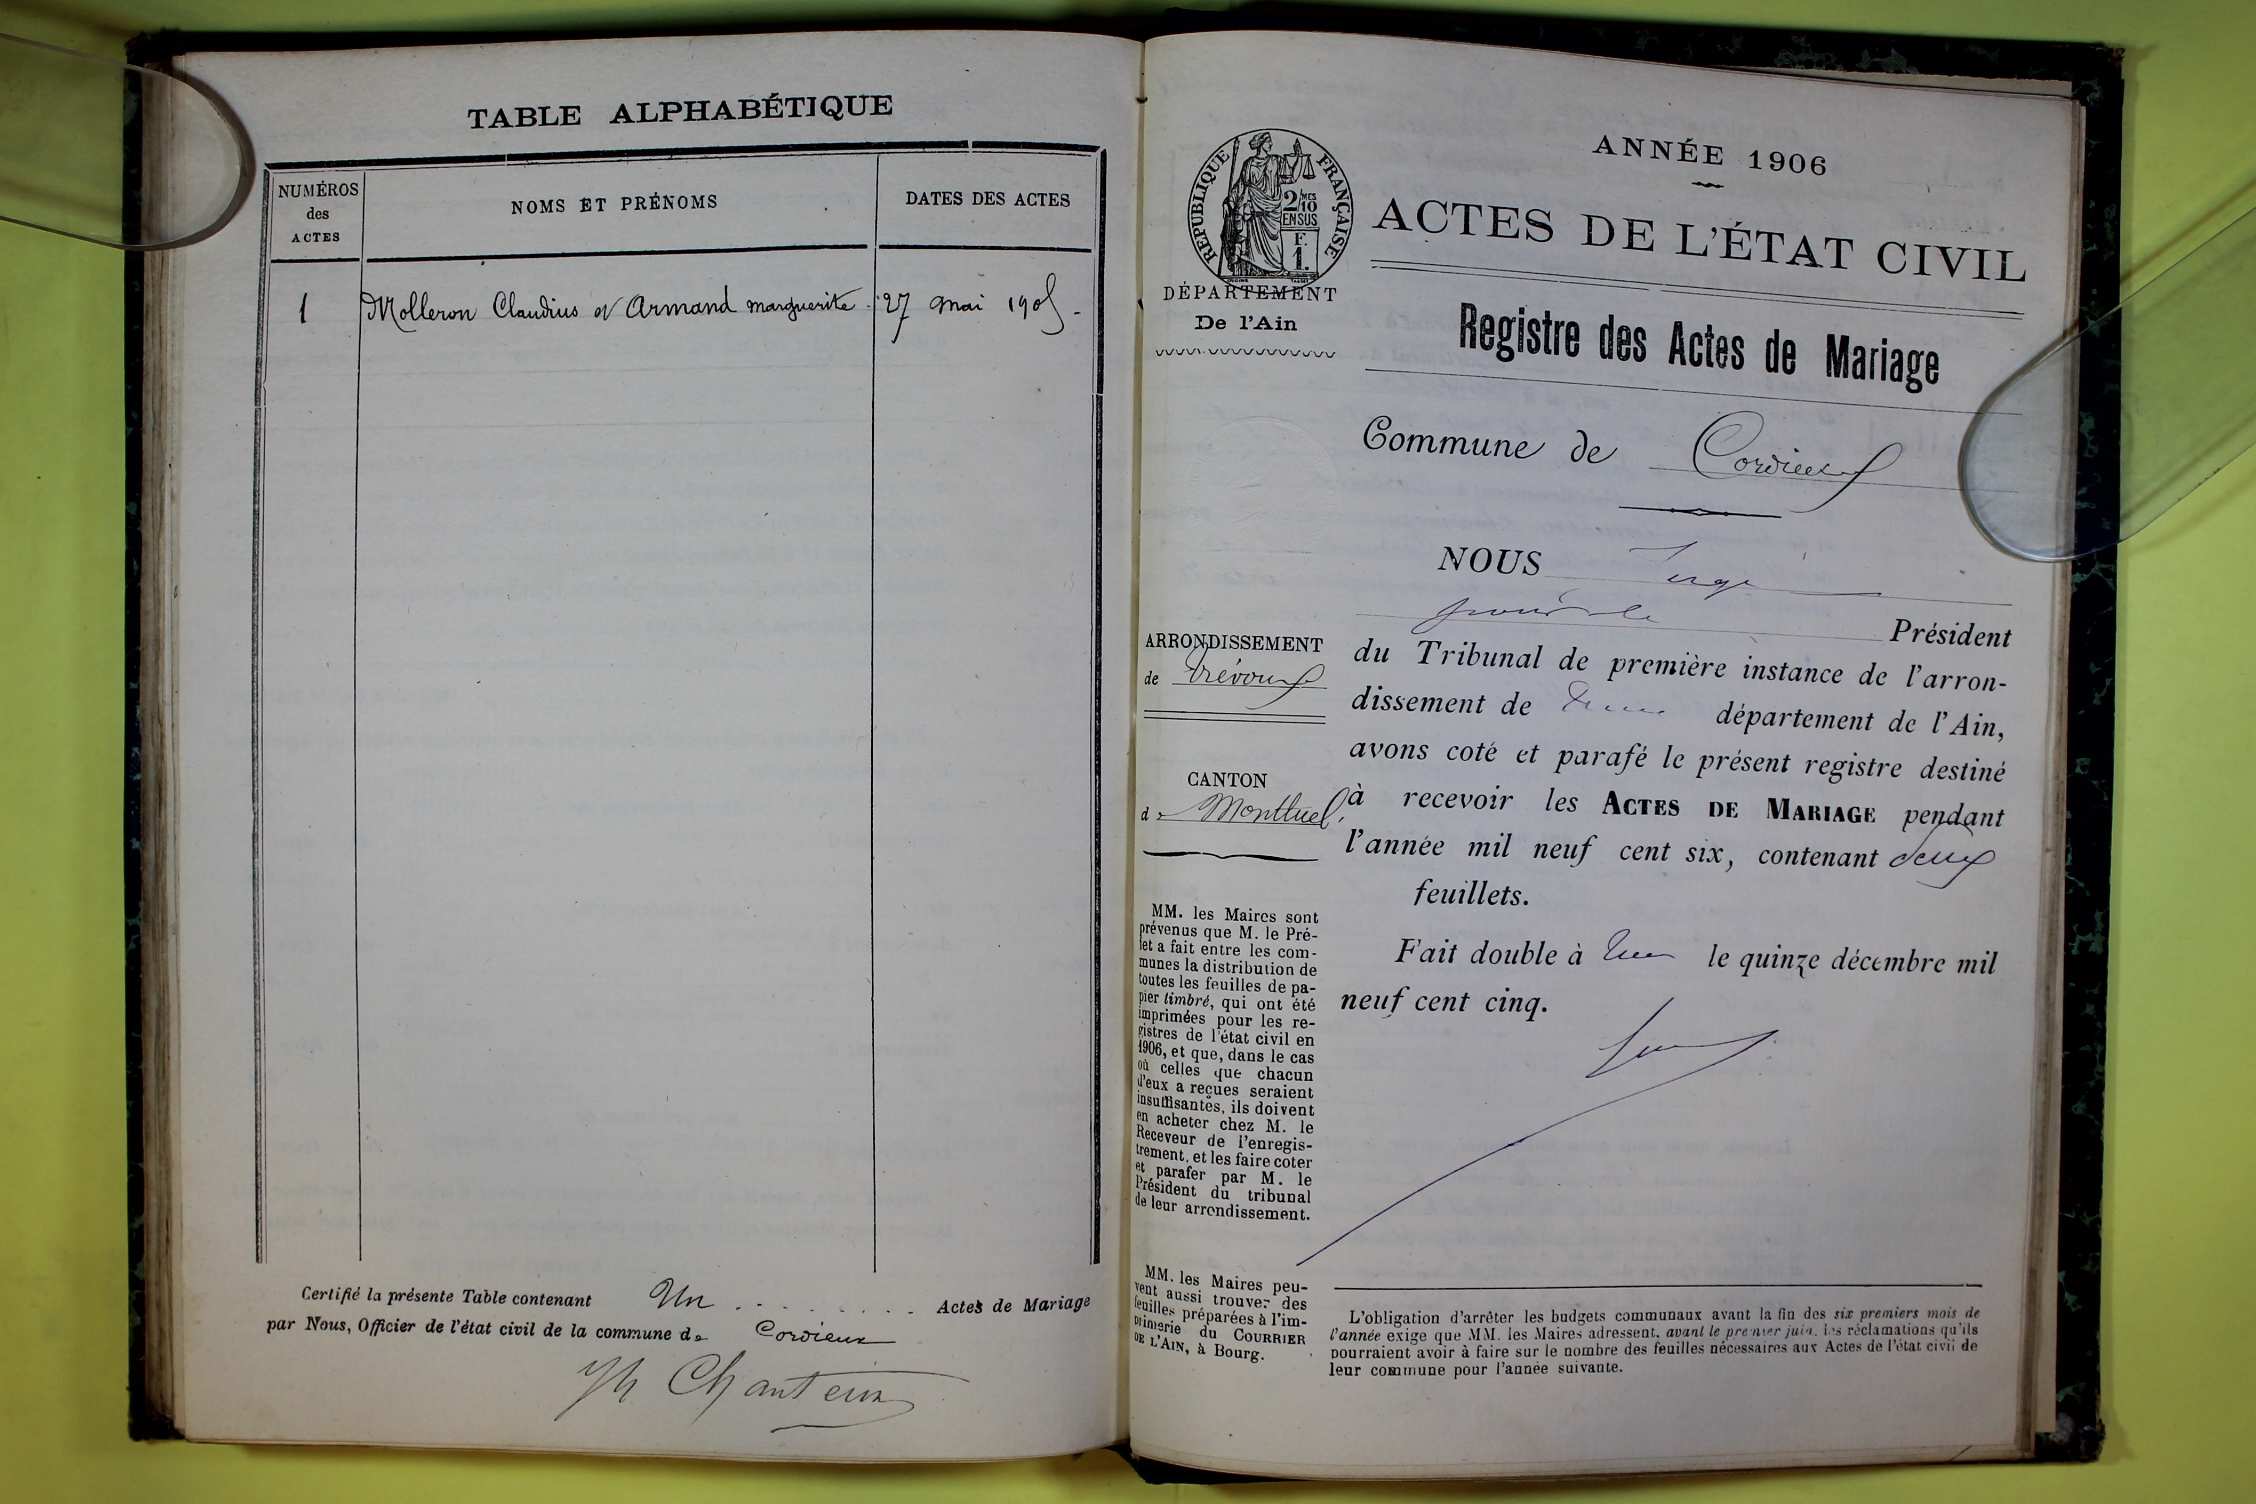 TABLE ALPHABÉTIQUE
NUMÉROS
des
ACTES
NOMS ET PRÉNOMS
DATES DES ACTES
1 Molleron Claudius et Armand marguerite 27 mai 1905
Certifié la présente Table contenant Un Actes de Mariage
par Nous, Officier de l'état civil de la commune de Cordieux
Chanteur
RÉPUBLIQUE FRANÇAISE
2/10MES
EN SUS
F.
1.
DÉPARTEMENT
De l'Ain
ANNÉE 1906
ACTES DE L'ÉTAT CIVIL
Registre des Actes de Mariage
Commune de Cordieux
NOUS Juge
Président
ARRONDISSEMENT
de Trévoux
du Tribunal de première instance de l'arron-
dissement de département de l'Ain,
avons coté et parafé le présent registre destiné
CANTON
de Montluel
à recevoir les ACTES DE MARIAGE pendant
l'année mil neuf cent six, contenant deux
feuillets.
Fait double à le quinze décembre mil
neuf cent cinq.
MM. les Maires sont
prévenus que M. le Pré-
fet a fait entre les com-
munes la distribution de
toutes les feuilles de pa-
pier timbré, qui ont été
imprimées pour les re-
gistres de l'état civil en
1906, et que, dans le cas
où celles que chacun
d'eux a reçues seraient
insuffisantes, ils doivent
en acheter chez M. le
Receveur de l'enregis-
trement, et les faire coter
et parafer par M. le
Président du tribunal
de leur arrondissement.
MM. les Maires peu-
vent aussi trouver des
feuilles préparées à l'im-
primerie du COURRIER
DE L'AIN, à Bourg.
L'obligation d'arrêter les budgets communaux avant la fin des six premiers mois de
l'année exige que MM. les Maires adressent, avant le premier juin, les réclamations qu'ils
pourraient avoir à faire sur le nombre des feuilles nécessaires aux Actes de l'état civil de
leur commune pour l'année suivante.